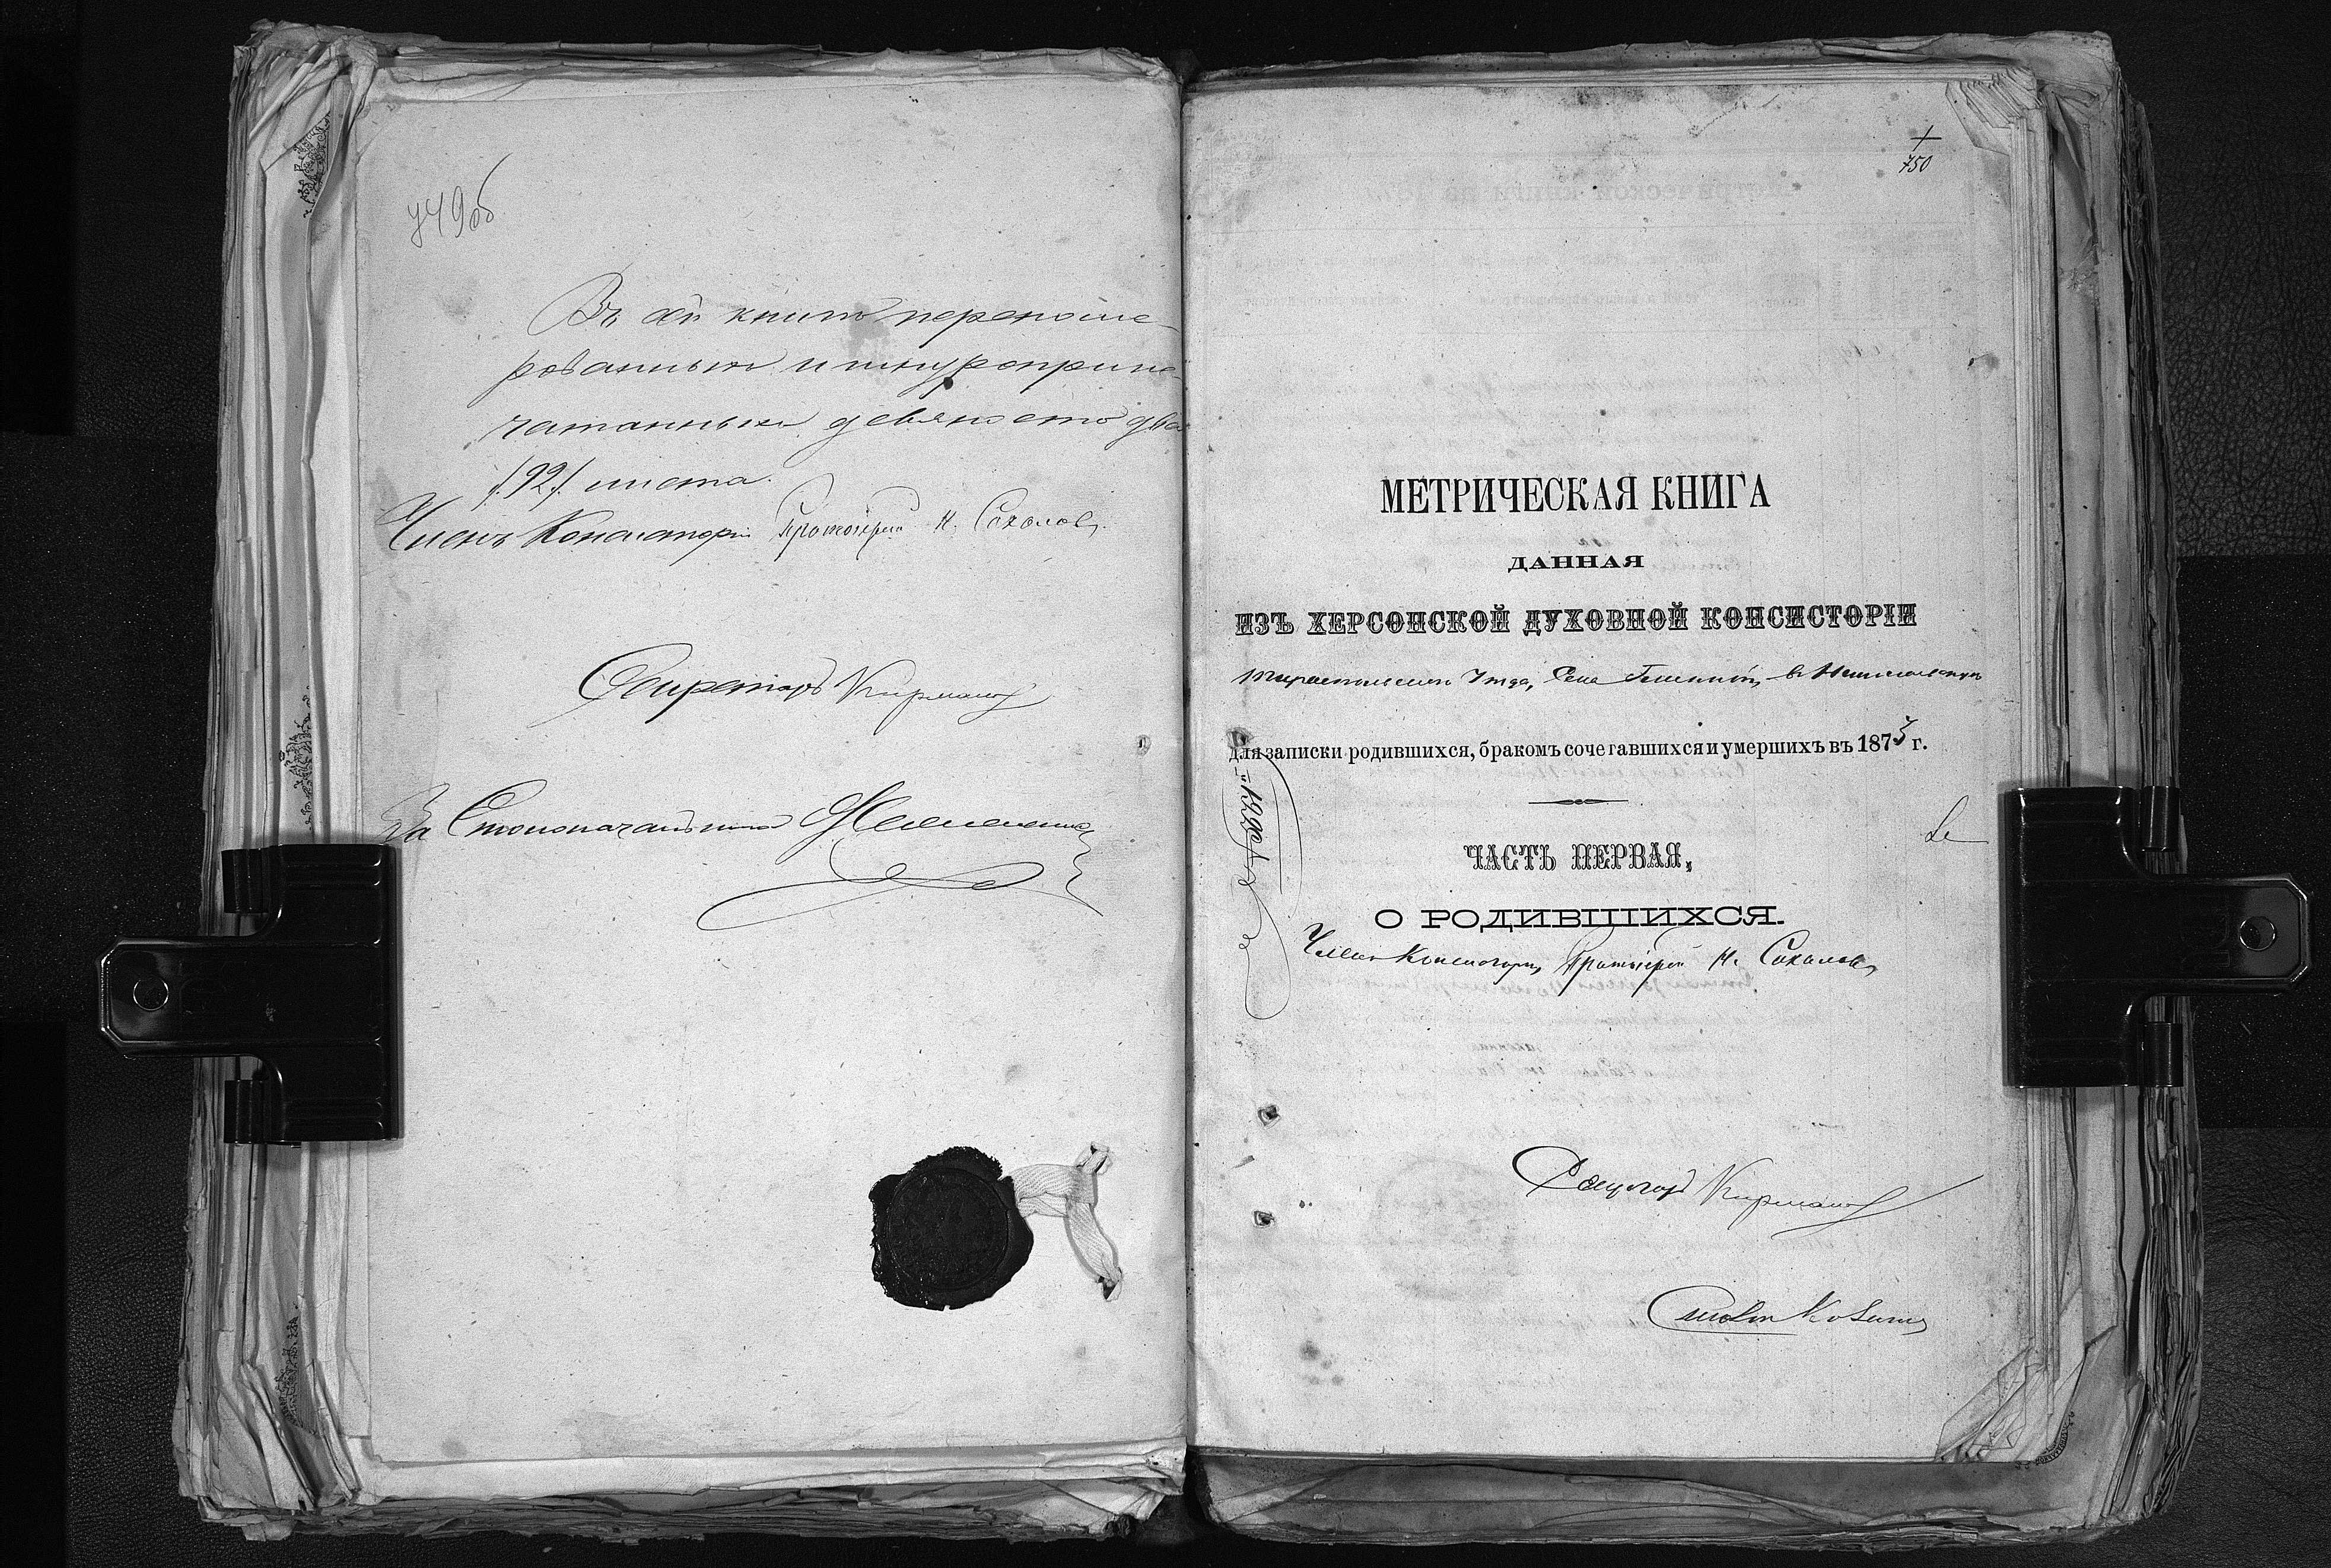 749об
Въ сей книгѣ перенуме-
рованныхъ и шнуроприпе-
чатанныхъ девяносто два
/92/ листа.
Членъ Консисторіи Протоіерей Н. Соколовъ
Секретарь
За Столоначальника
750
МЕТРИЧЕСКАЯ КНИГА
ДАННАЯ
ИЗЪ ХЕРСОНСКОЙ ДУХОВНОЙ КОНСИСТОРІИ
Тираспольскаго Уѣзда, Села
для записки родившихся, бракомъ сочетавшихся и умершихъ въ 1873 г.
ЧАСТЬ ПЕРВАЯ,
О РОДИВШИХСЯ.
Членъ Консисторіи, Протоіерей Н. Соколовъ
Секретарь